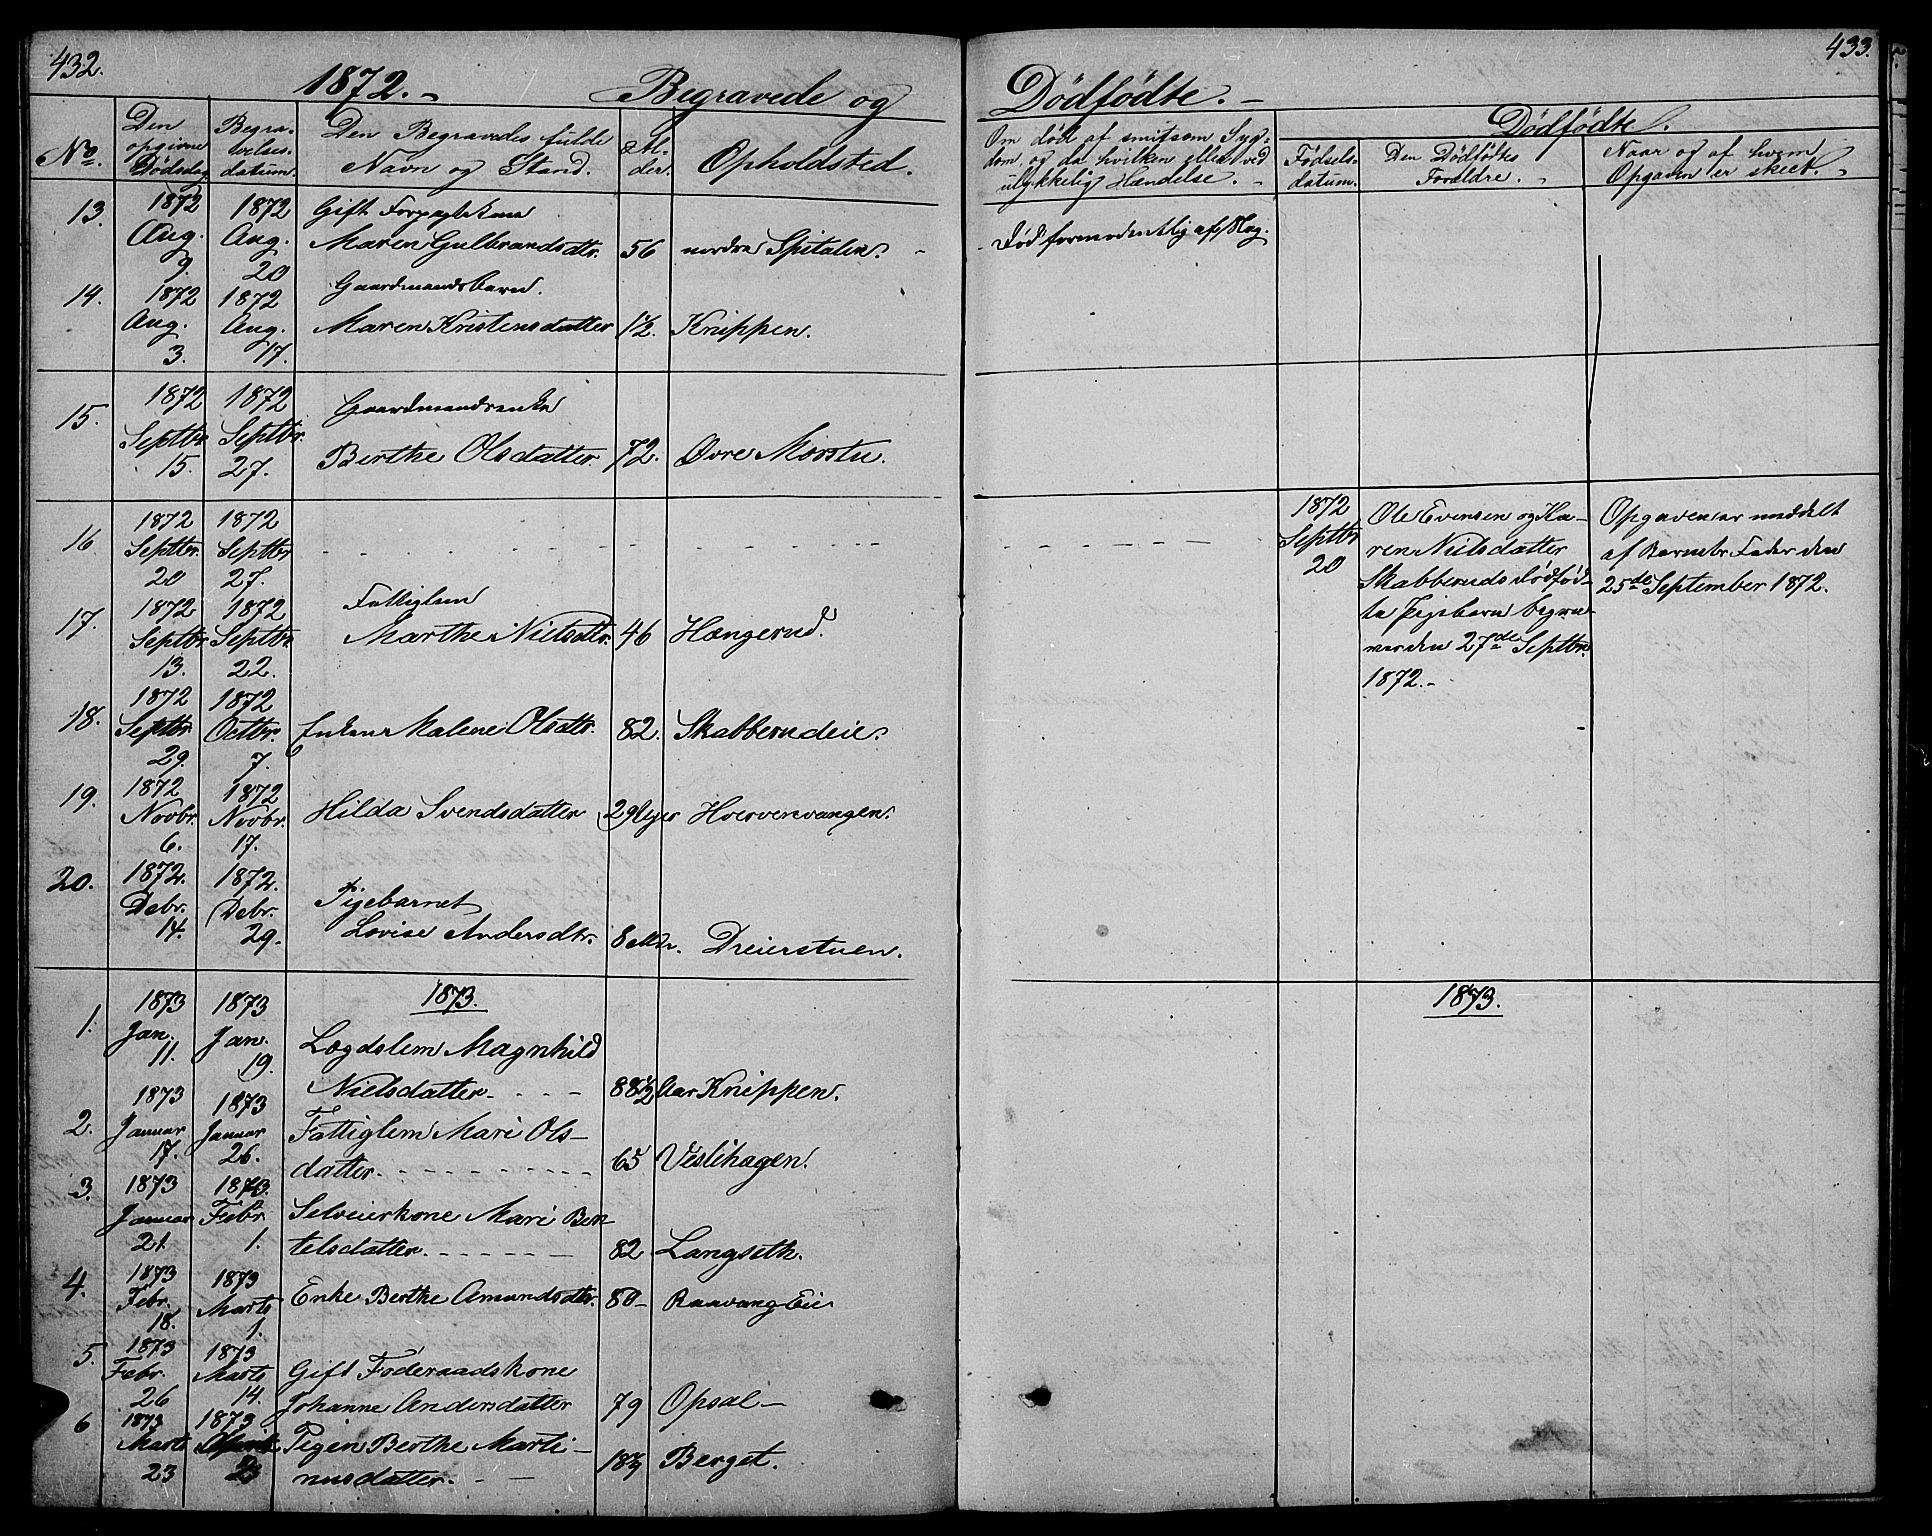 432.
1872.- Begravede og
No.
Den opgivne Dødsdag
Begra-velses-datum.
Den Begravedes fulde Navn og Stand.
Al-der.
Opholdsted.
13. 1872 Aug. 9. 1872 Aug. 20 Gift
Maren Gulbrandsdtr. 56 nordre Spitalen. -
14. 1872 Aug. 3. 1872 Aug. 17. Gaardmandsbarn.
Maren Kristensdatter 1½. Knippen.
15. 1872 Septbr. 15. 1872 Septbr. 27. Gaardmandsenke
Berthe Olsdatter. 72. Øvre Morstu.
16. 1872 Septbr. 20 1872 Septbr 27.
17. 1872 Septbr 13. 1872 Septbr. 22. Fattiglem
Marthe Nielsdtr. 46 Hængerud.
18. 1872 Septbr. 29. 1872 Octbr. 7. Enken Malene Olsdtr. 82. Skabberudeie.
19. 1872 Novbr. 6. 1872 Novbr. 17. Hilda Svendsdatter 29 Uger Hvervenvangen.
20. 1872. Debr. 14. 1872. Debr. 29. Pigebarnet
Lovise Andersdtr. 8 Mdr. Dreierstuen.
1873.
1. 1873 Jan. 11. 1873 Jan. 19. Lægdslem Magnhild
Nielsdatter. - - - 88½ Aar Knippen.
2. 1873 Januar 17. 1873 Januar 26. Fattiglem Mari Ols-
datter. - - - 65 Veslehagen.
3. 1873 Januar 21. 1873. Febr. 1. Selveierkone Mari Ben-
telsdatter. - - - 82 Langseth.
4. 1873 Febr. 18. 1873 Marts 1. Enke Berthe Amundsdtr. 80- Raavang Eie
5. 1873 Febr. 26 1873 Marts 14. Gift Føderaadskone
Johanne Andersdatter 79 Opsal-
6 1873 Marts 23 1873 Pigen Berthe Marti-
nusdatter. - - Berget.
433.
Dødfødte.-
Om død af smitsom Syg-
dom, og da hvilken eller ved
ulykkelig Hændelse.
Dødfødte.
Fødsels-datum.
Den Dødfødtes Forældre.
Naar og af hvem
Opgaven er skeet.
Død formodentlig af Slag.
1872 Septbr 20
Ole Evensen og Ka-
ren Nielsdatter
Skabberuds dødfød-
te Pigebarn begra-
ves den 27de Septbr.
1872.-
Opgaven er meddelt
af Barnets Fader den
25de September 1872.
1873.